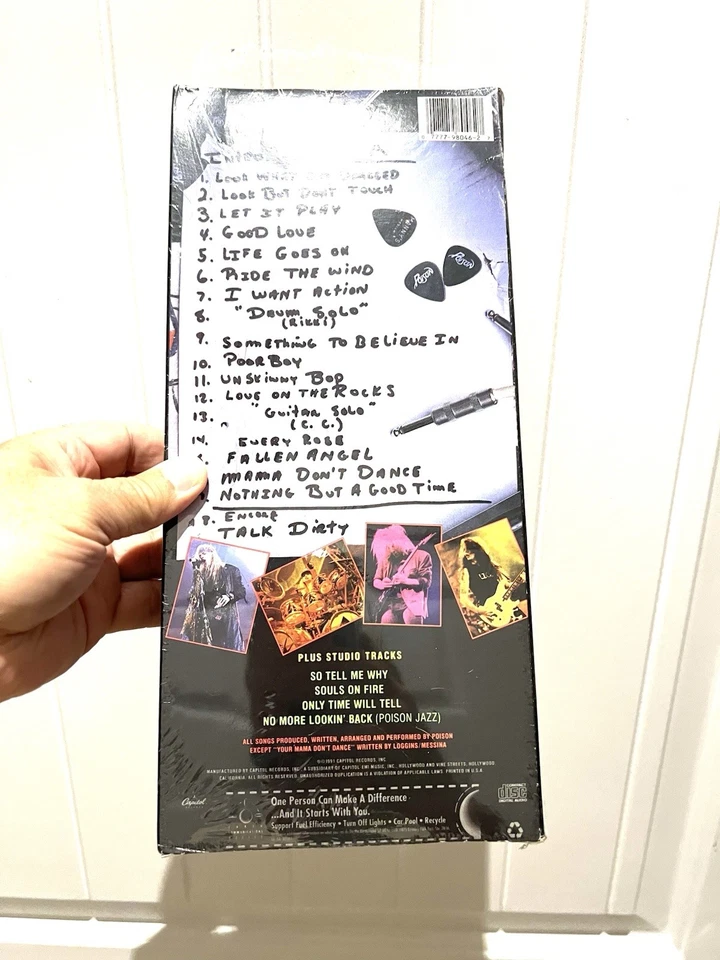 7777-98046-2
1. Look WHAT
2. Look But Dont Touch
3. LET IT PLAY
4. GOOD LOVE
5. LIFE GOES ON
6. RIDE THE WIND
7. I WANT ACtiON
8. "DRUM SOLO"
(RIKKI)
9. SOMETHING TO BELIEVE IN
10. POOR BOY
11. UNSKINNY BOP
12. LOVE ON THE ROCKS
13. "GUITAR SOLO"
(C. C.)
14. EVERY ROSE
FALLEN ANGEL
MAMA DON'T DANCE
NOTHING BUT A GOOD TIME
8. ENCORE
TALK DIRTY
POISON
POISON
PLUS STUDIO TRACKS
SO TELL ME WHY
SOULS ON FIRE
ONLY TIME WILL TELL
NO MORE LOOKIN' BACK (POISON JAZZ)
ALL SONGS PRODUCED, WRITTEN, ARRANGED AND PERFORMED BY POISON
EXCEPT "YOUR MAMA DON'T DANCE" WRITTEN BY LOGGINS/MESSINA
1991 CAPITOL RECORDS, INC
MANUFACTURED BY CAPITOL RECORDS, INC., A SUBSIDIARY OF CAPITOL-EMI MUSIC, INC., HOLLYWOOD AND VINE STREETS, HOLLYWOOD,
CALIFORNIA. ALL RIGHTS RESERVED. UNAUTHORIZED DUPLICATION IS A VIOLATION OF APPLICABLE LAWS. PRINTED IN U.S.A.
Capitol
COMPACT
disc
DIGITAL AUDIO
One Person Can Make A Difference
...And It Starts With You.
Support Fuel Efficiency • Turn Off Lights • Car Pool • Recycle